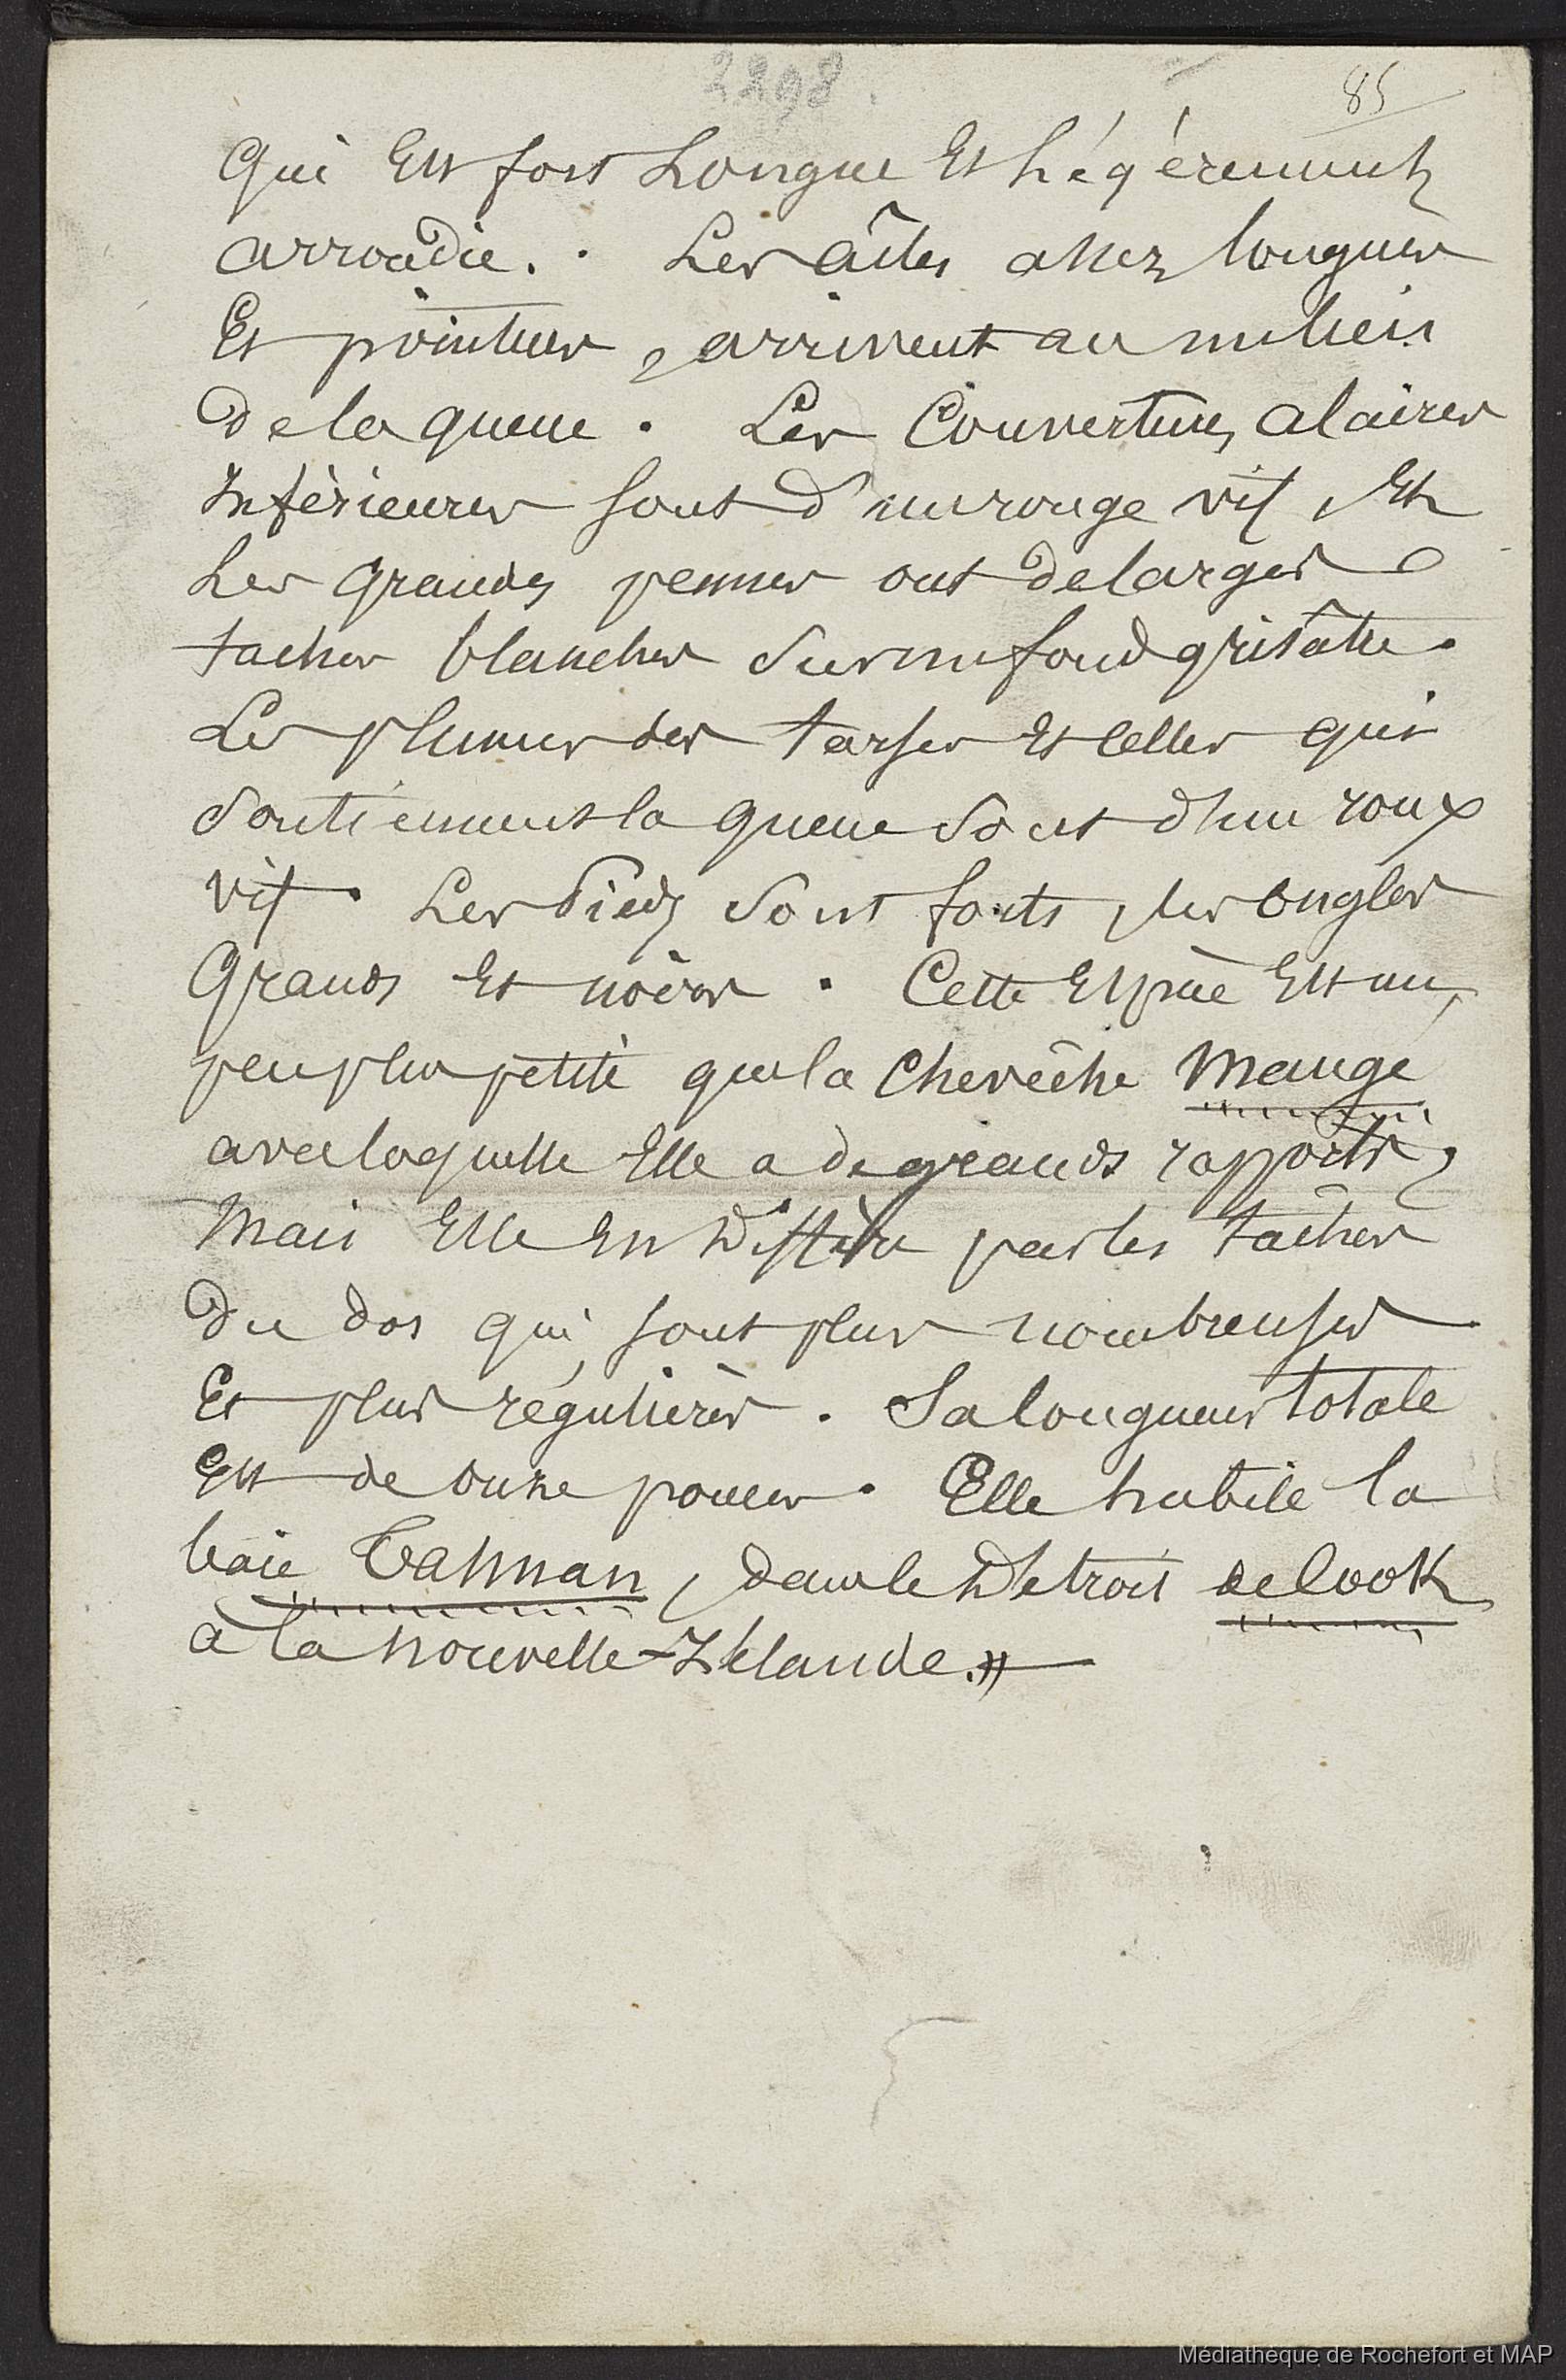 2298.
85
Qui Est fort Longue Et Légérement
arrondie. . Les âiles assez longues
Et pointues, arrivent au milieu
de la queue . Les Couvertures alaires
Inférieures sont d'un rouge vif, Et
Les Grandes pennes ont de larges
taches blanches sur un fond grisâtre .
Les plumes des tarses Et celles qui
soutiennent la queue sont d'un roux
vif . Les Pieds sont forts, les ongles
Grands Et noirs . Cette Espèce Est un
peu plus petite que la chevêche Maugé
avec laquelle Elle a de grands rapports,
Mais Elle En Diffère par les tâches
du dos qui sont plus nombreuses
Et plus régulières . Sa longueur totale
Est de onze pouces . Elle habite la
baie Tasman, dans le Détroit de Cook
à la nouvelle-Zélande.»
Médiathèque de Rochefort et MAP